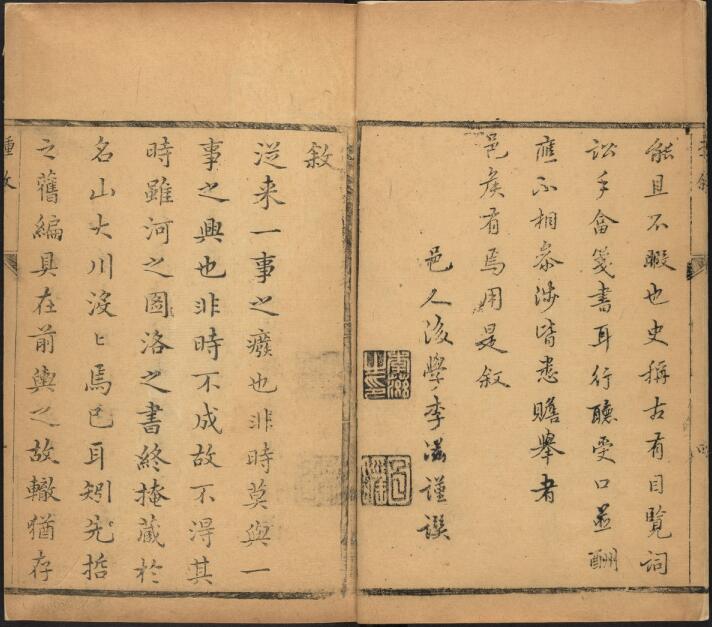 能且不暇也史稱古有目覽詞
訟手畣箋書耳行聽受口並酬
應不相參涉皆悉贍舉者
邑矦有焉用是叙
邑人後學李滋謹譔
敘
從来一事之癈也非時莫與一
事之興也非時不成故不得其
時雖河之圖洛之書終掩蔵於
名山大川没〻焉已耳矧先哲
之舊編具在前輿之故轍猶存